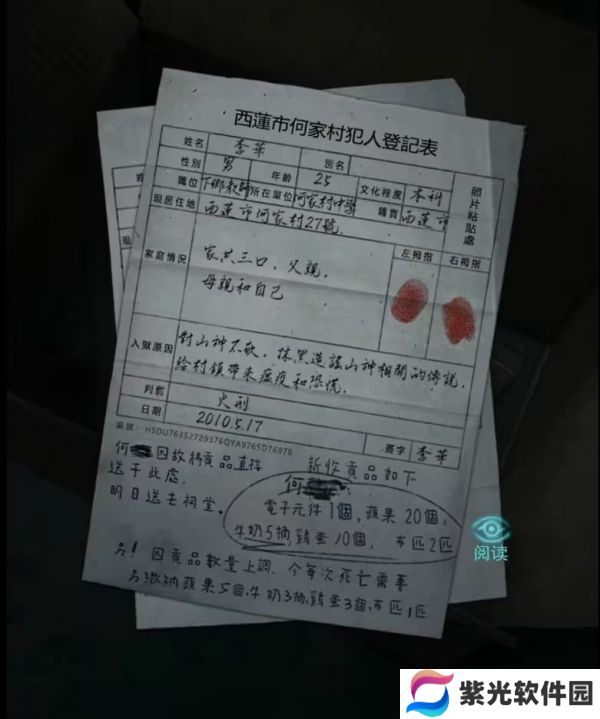 西蓮市何家村犯人登記表
姓名 李華 別名
性別 男 年齡 25 文化程度 本科
職位 下鄉教師 所在單位 何家村中學 籍貫 西蓮市
現居住地 西蓮市何家村27號
照片粘貼處
家庭情況 家共三口，父親，
母親和自己
左拇指 右拇指
入獄原因 對山神不敬，抹黑造謠山神相關的傳說，
給村鎮帶來瘟疫和恐慌。
判罰 火刑
日期 2010.5.17
編號：HSDU76352729376QYA9765D76978 簽字 李華
何 因故將貢品直接
送于此處，
明日送去祠堂。
新收貢品如下
何
電子元件1個，蘋果20個，
牛奶5桶，鷄蛋10個，布匹2匹
另！因貢品數量上調，今每次死亡需要
另繳納蘋果5個，牛奶3桶，鷄蛋3個，布匹1匹
阅读
紫光软件园